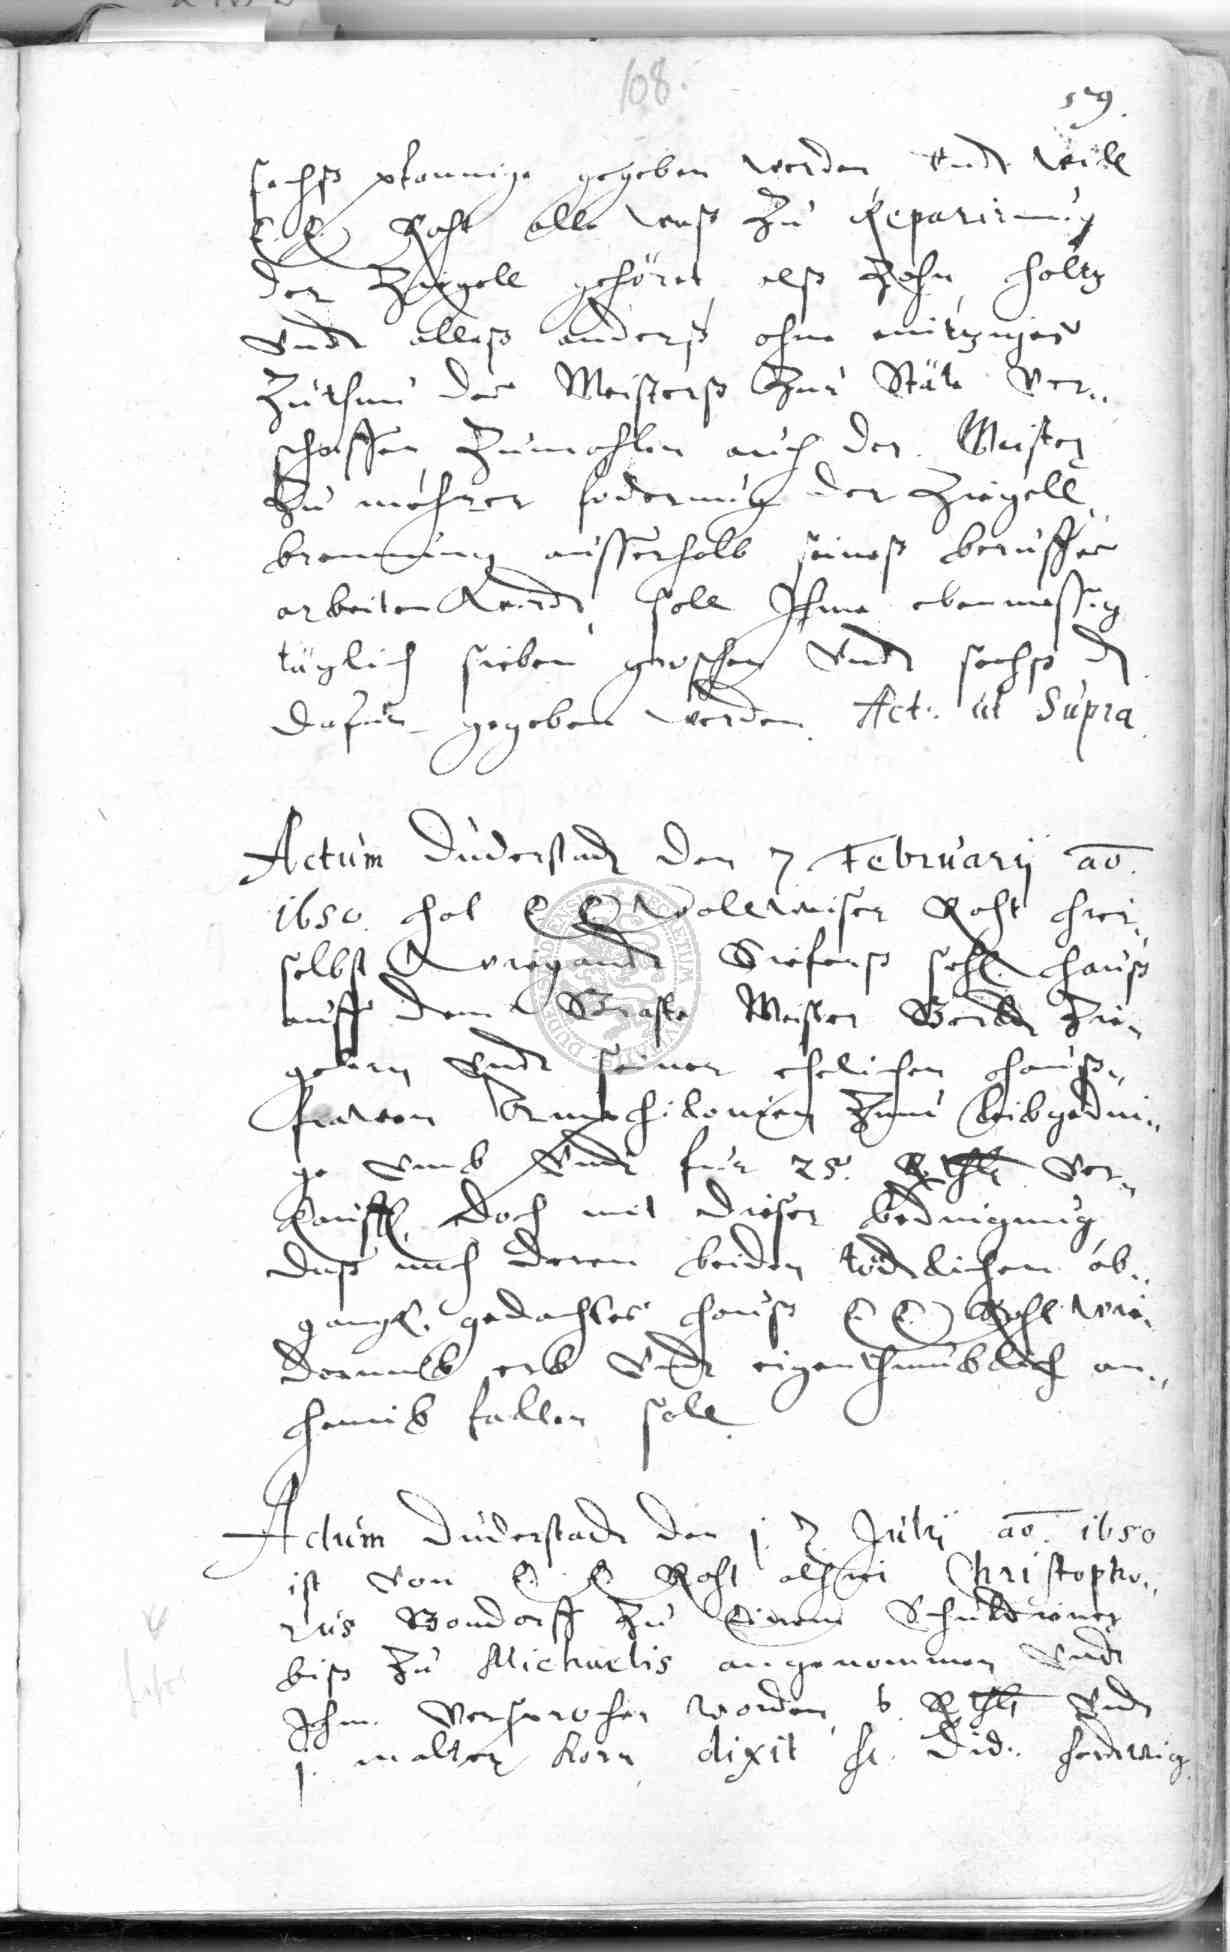 108.
179.
sechß pfennige gegeben werden, undt will
E. E. Raht alle waß zu Reparirung
der Ziegell gehöret, alß Zehn, holtz
undt alleß anderß ohne einitziges
Zuthun des Meisterß Zur Stäte ver„
schaffen, Zumahlen auch der Meister
Zu mehrer foderung der Ziegell
brennung ausserhalb seineß beruffes
arbeiten wirdt, soll Ihme ebenmessig
täglich sieben groschen undt sechß d
dafur gegeben werden. Act. ut Supra.
Actum Duderstadt den 7 Februarij ao.
1650. hat E E Wollweiser Raht hier„
selbst Wiegandt Sieferß sehl. hauß
auff dem Meister Zie„
gelern undt seiner ehelichen hauß„
frawen Zum leibgedin„
ge umb undt fur 25. Rthlr ver„
kaufft, doch mit dieser bedingung,
daß nach deren beiden tödtlichen ab„
gangk, gedachtes hauß E E Raht wie„
derumb erb undt eigenthumblich an„
heimb fallen soll.
Actum Duderstadt den j. 7. Julij ao. 1650
ist von E. E. Raht alhie Christopho„
rus Bondorff Zu Einem Schuldiener
biß Zu Michaelis angenommen undt
Ihm versprochen worden 6 Rthlr undt
j. malter korn dixit H. Did. Hedwig.